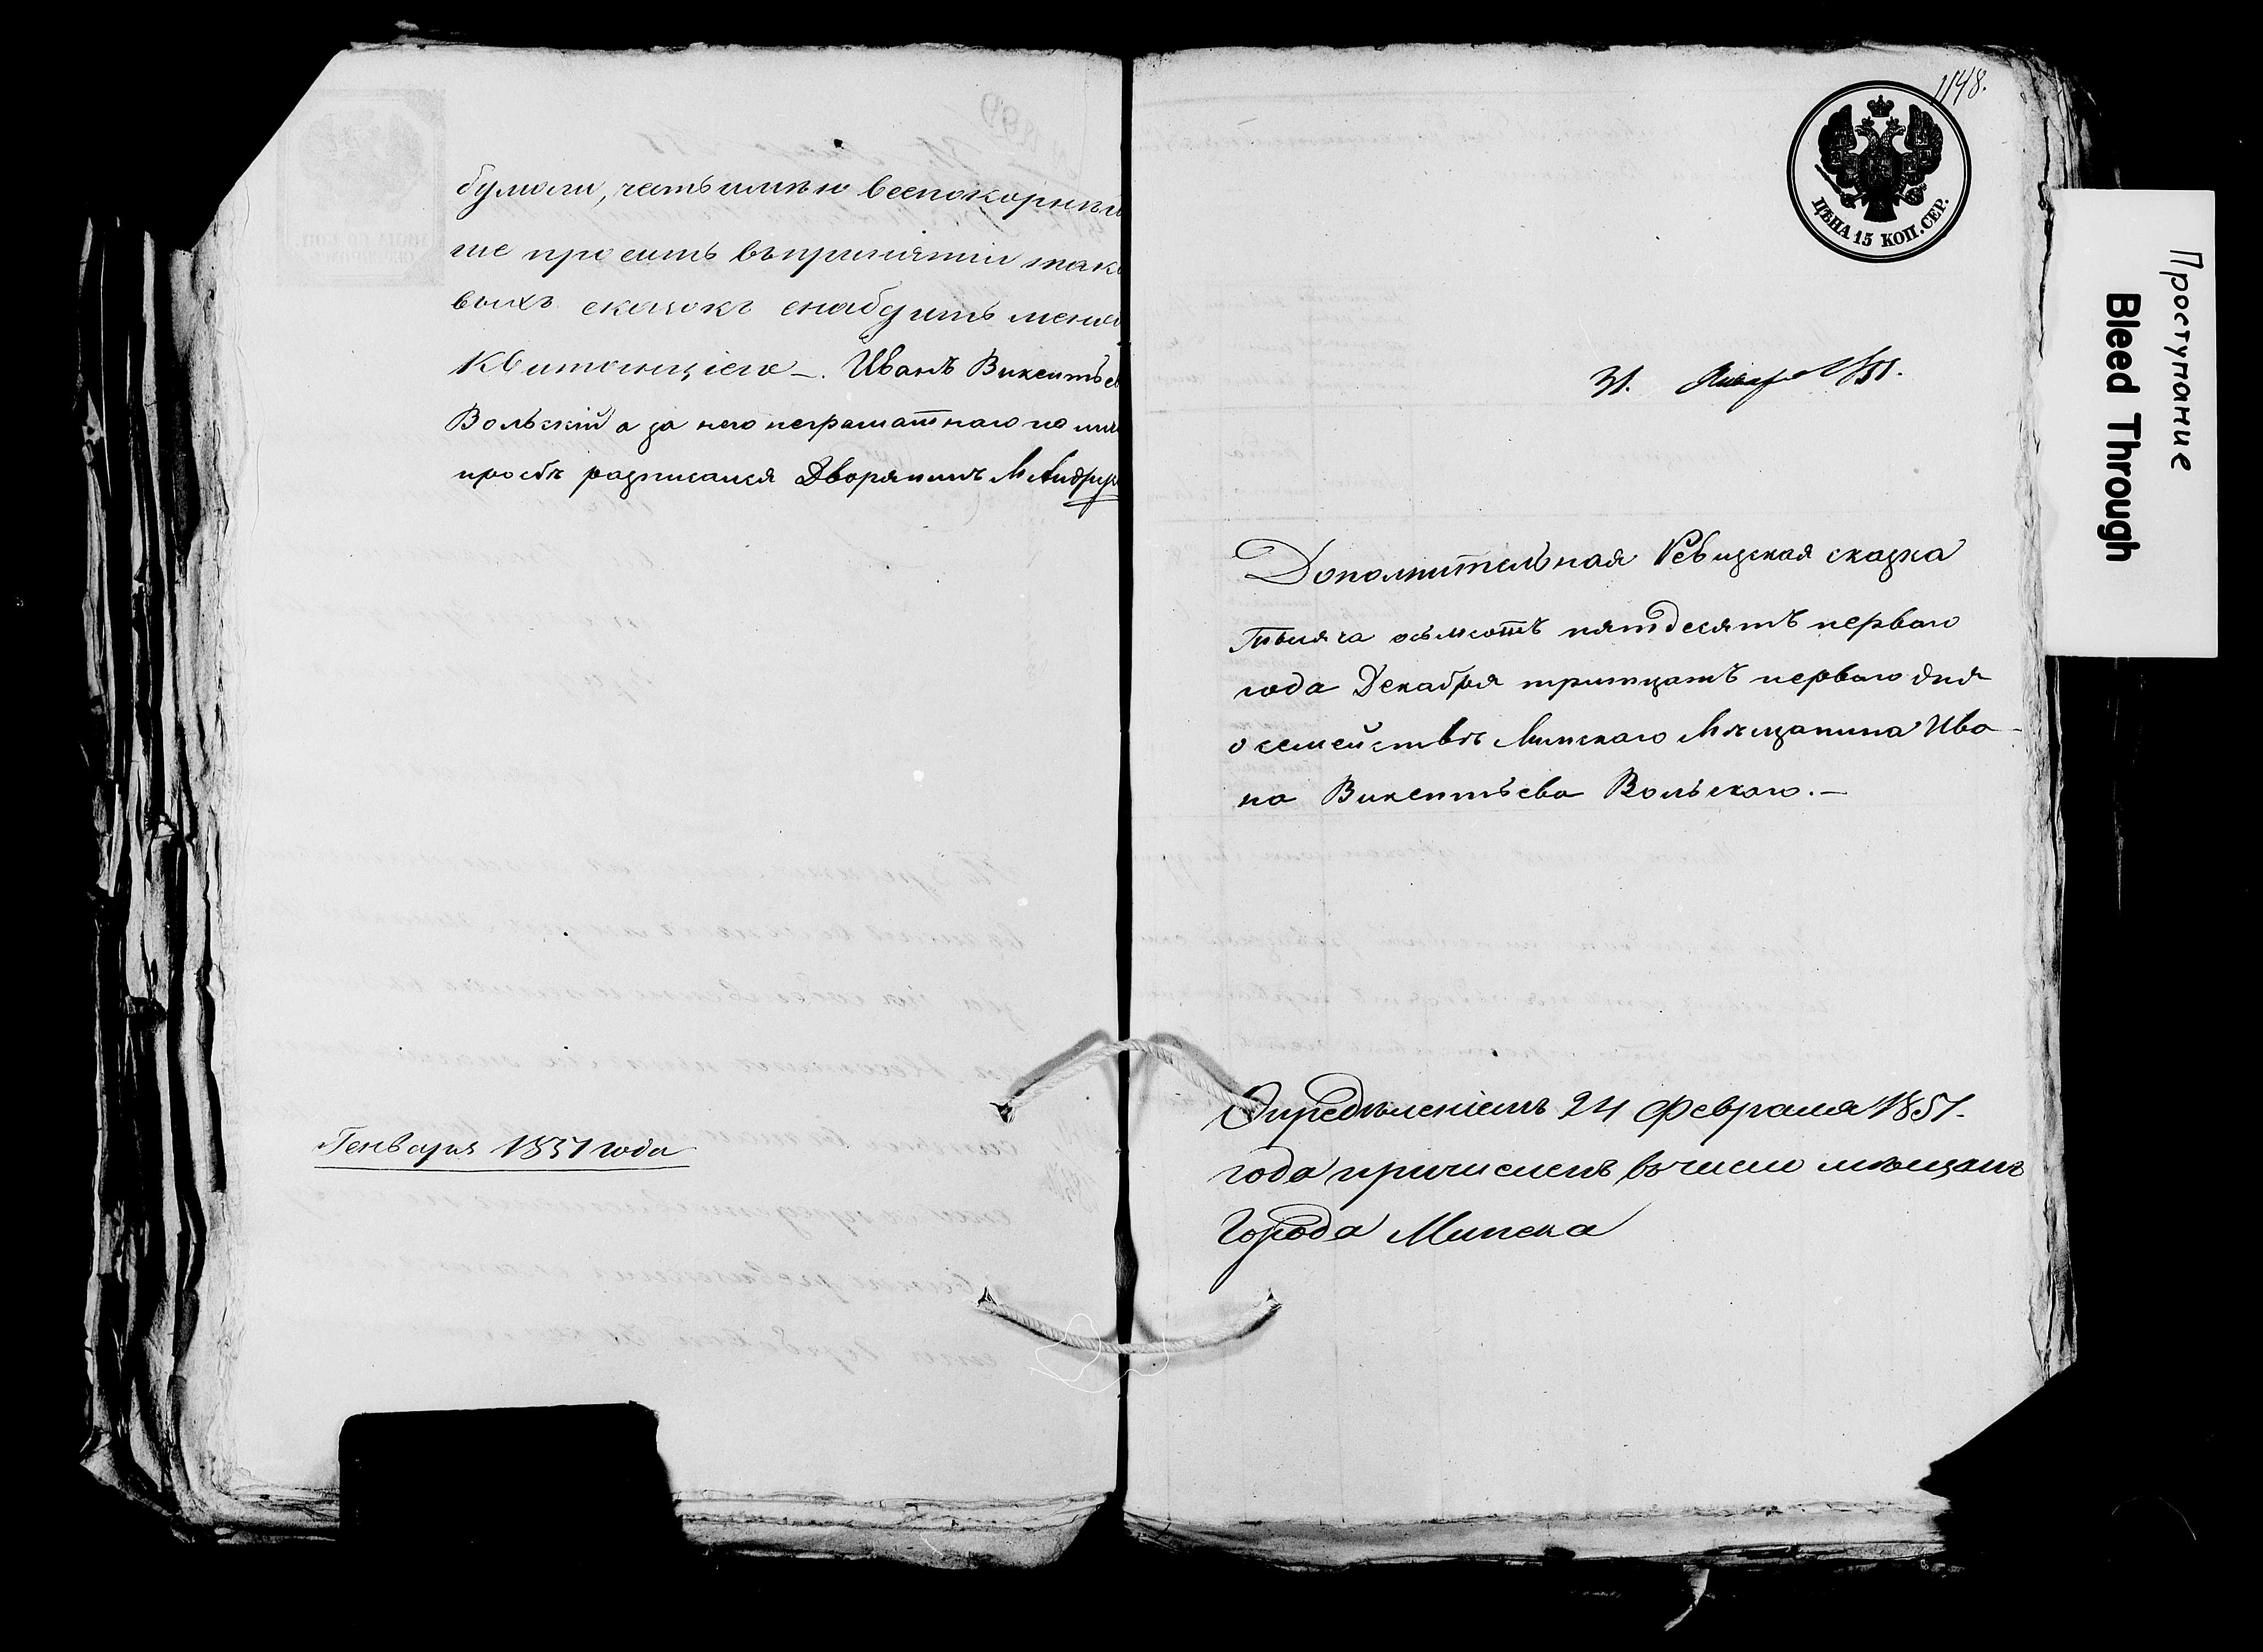 бумаги, честь имѣю всепокорнѣй
ше просить въ принятіи тако
выхъ сказокъ снабдить меня
Квитанціею –. Иванъ Викентьев
Вольскій а за него неграматнаго по
просбѣ расписался Дворянинъ М
Генваря 1851 года
1148.
ЦѢНА 15 КОП. СЕР.
31. Января 1851.
Дополнительная Ревизская сказка
тысяча осьмсотъ пятдесятъ перваго
года Декабря тритцать перваго дня
о семействѣ Минскаго Мѣщанина Ива-
на Викентьева Вольскаго.–
Опредѣленіемъ 24 Февраля 1851.
года причисленъ въ число мѣщанъ
Города Минска
Проступание
Bleed Through